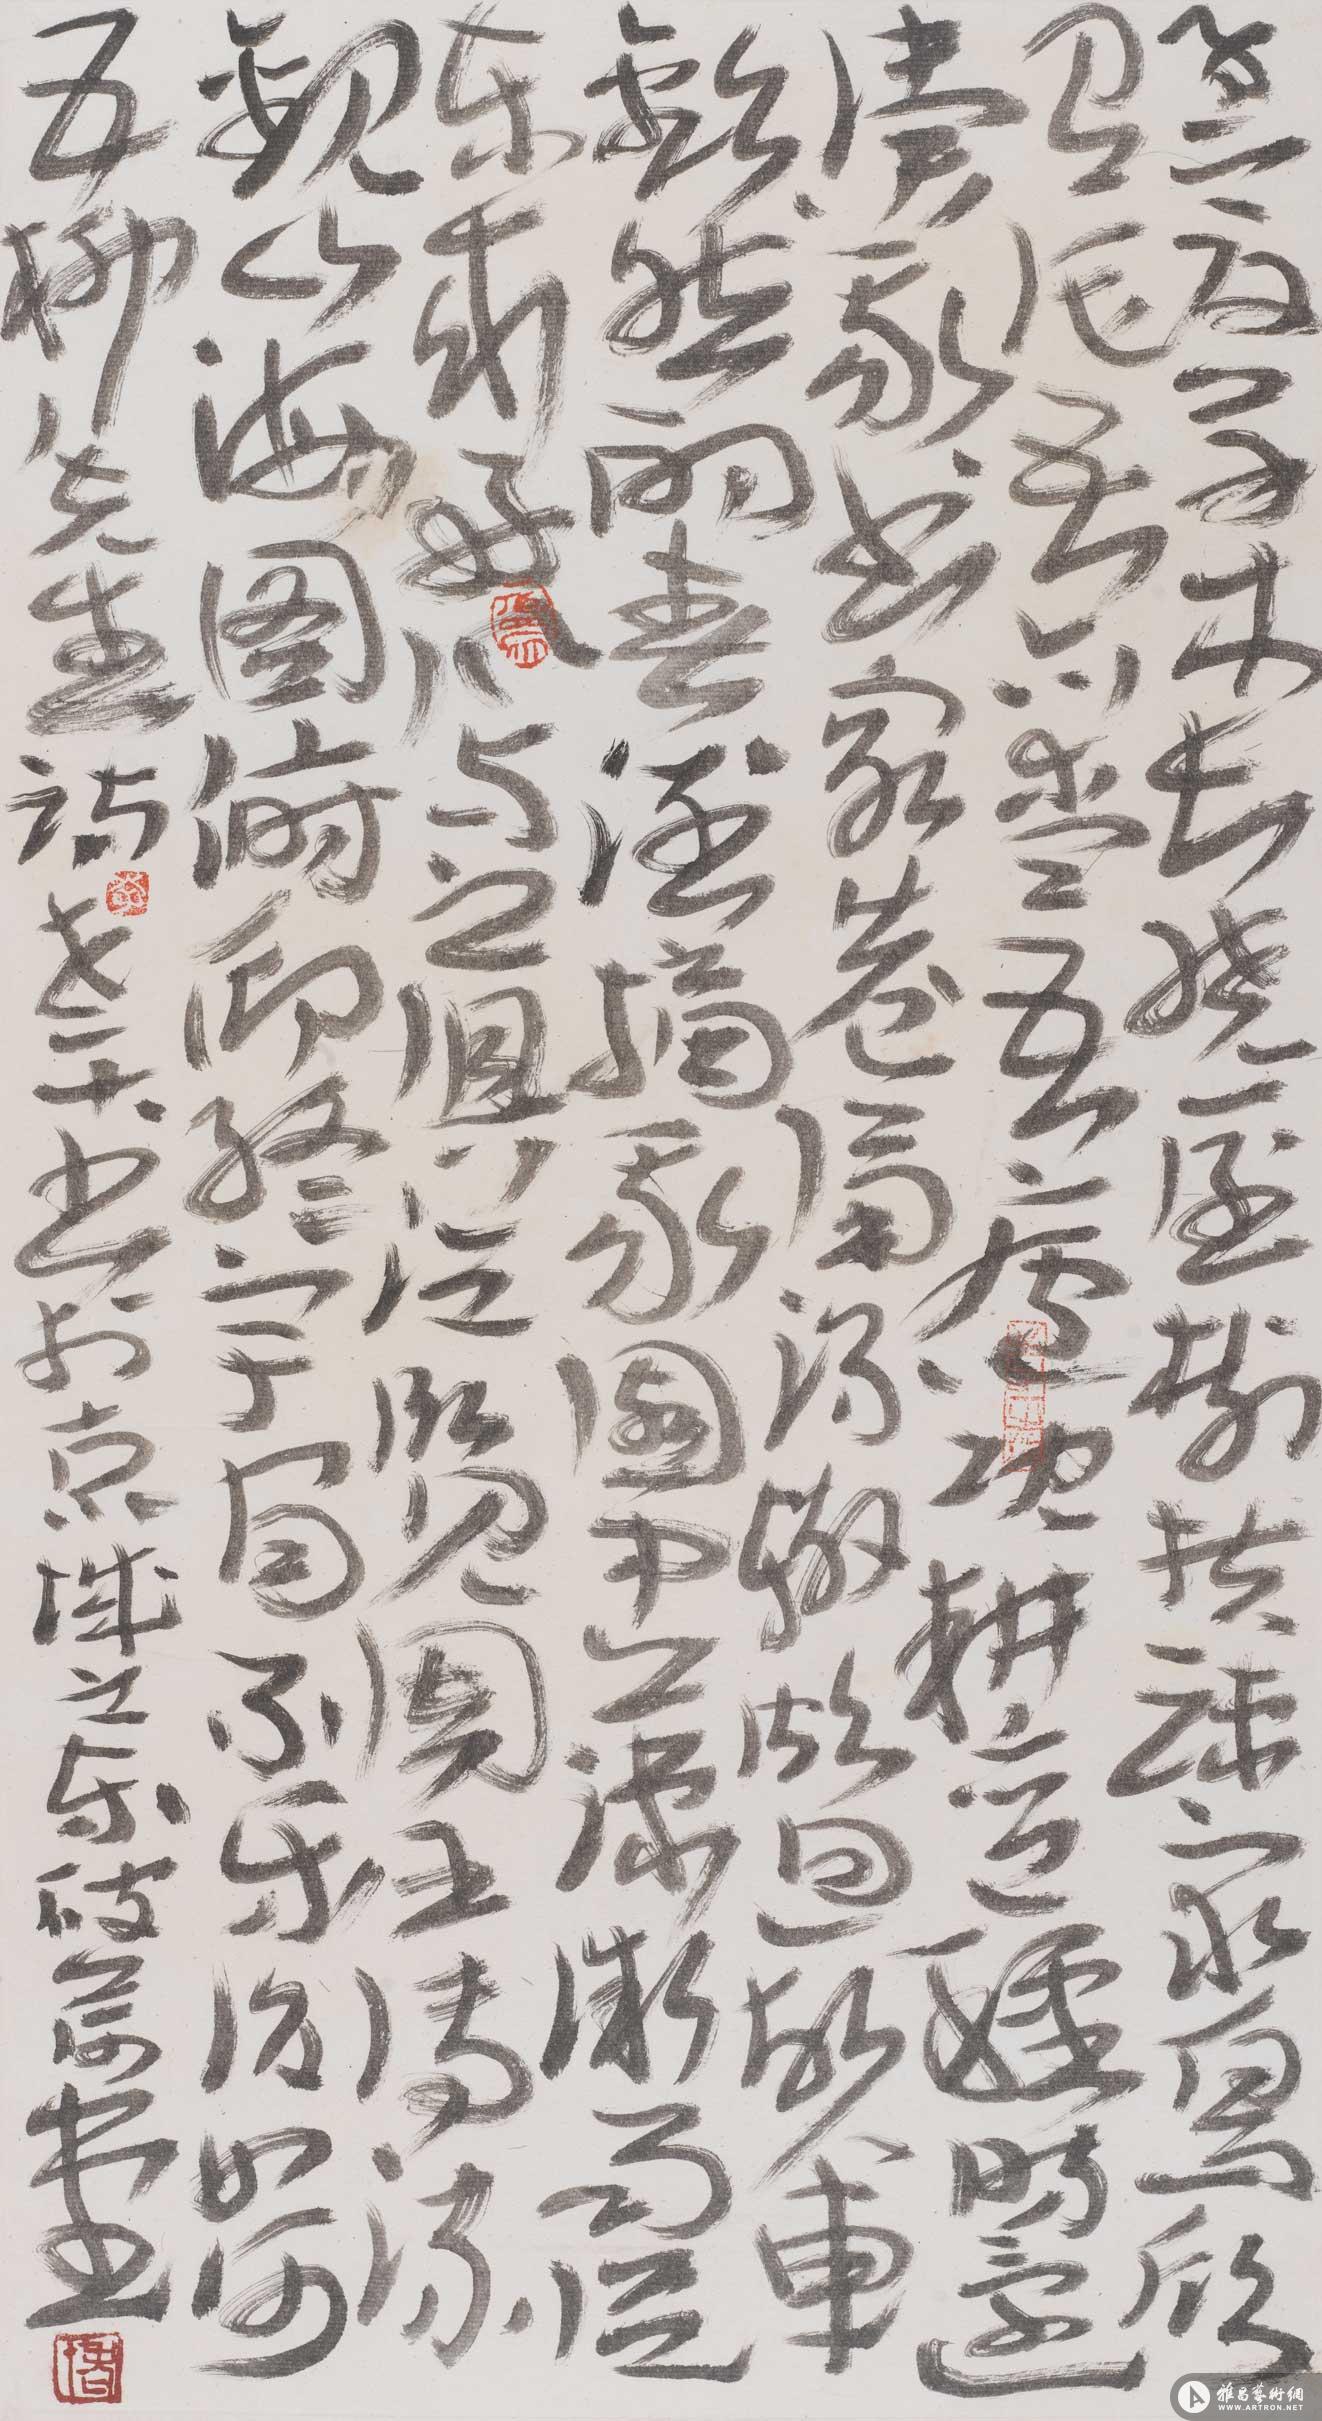 孟夏草木长绕屋树扶疏众鸟欣
有托吾亦爱吾庐既耕亦已種时還
读我书穷巷隔深辙颇迴故人車
歡然酌春酒摘我園中蔬微雨从
东来好风与之俱泛览周王传流
觀山海图俯仰终宇宙不乐復如何
五柳先生诗 书於京城之东 书
雅昌藝術網
WWW.ARTRON.NET